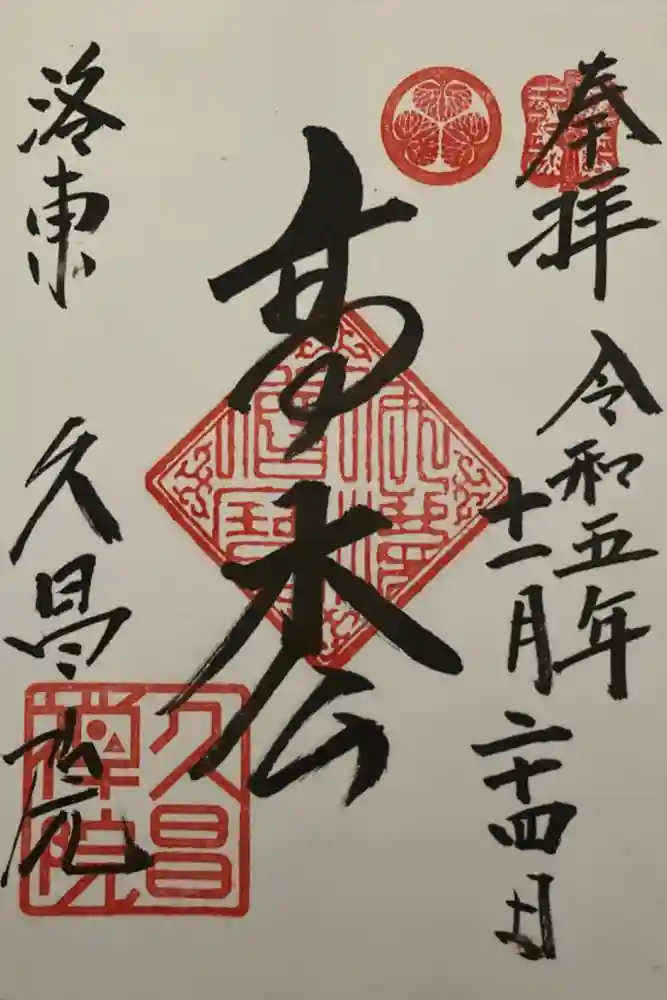 奉拝
令和五年
十一月二十四日
高松
洛東 久昌院
久昌
禅院